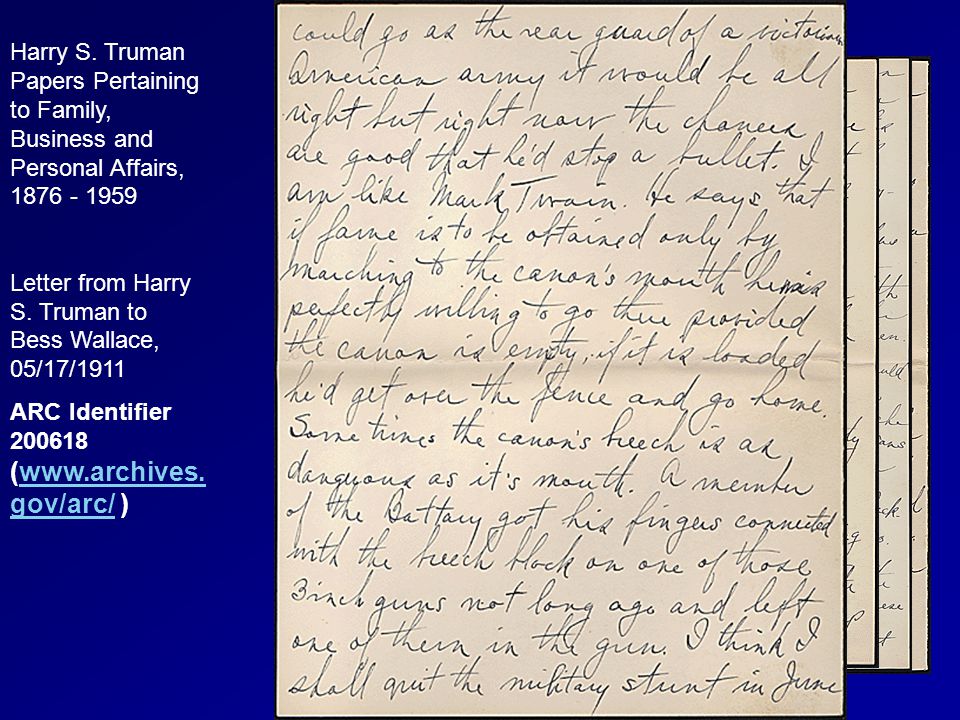 Harry S. Truman
Papers Pertaining
to Family,
Business and
Personal Affairs,
1876 - 1959
Letter from Harry
S. Truman to
Bess Wallace,
05/17/1911
ARC Identifier
200618
(www.archives.
gov/arc/ )
could go as the rear guard of a victorious
American army it would be all
right but right now the chances
are good that he'd stop a bullet. I
am like Mark Twain. He says that
if fame is to be obtained only by
marching to the canon's mouth he is
perfectly willing to go there provided
the canon is empty, if it is loaded
he'd get over the fence and go home.
Sometimes the canon's breech is as
dangerous as it's mouth. A member
of the Battary got his fingers connected
with the breech block on one of those
3 inch guns not long ago and left
one of them in the gun. I think I
shall quit the military stunt in June